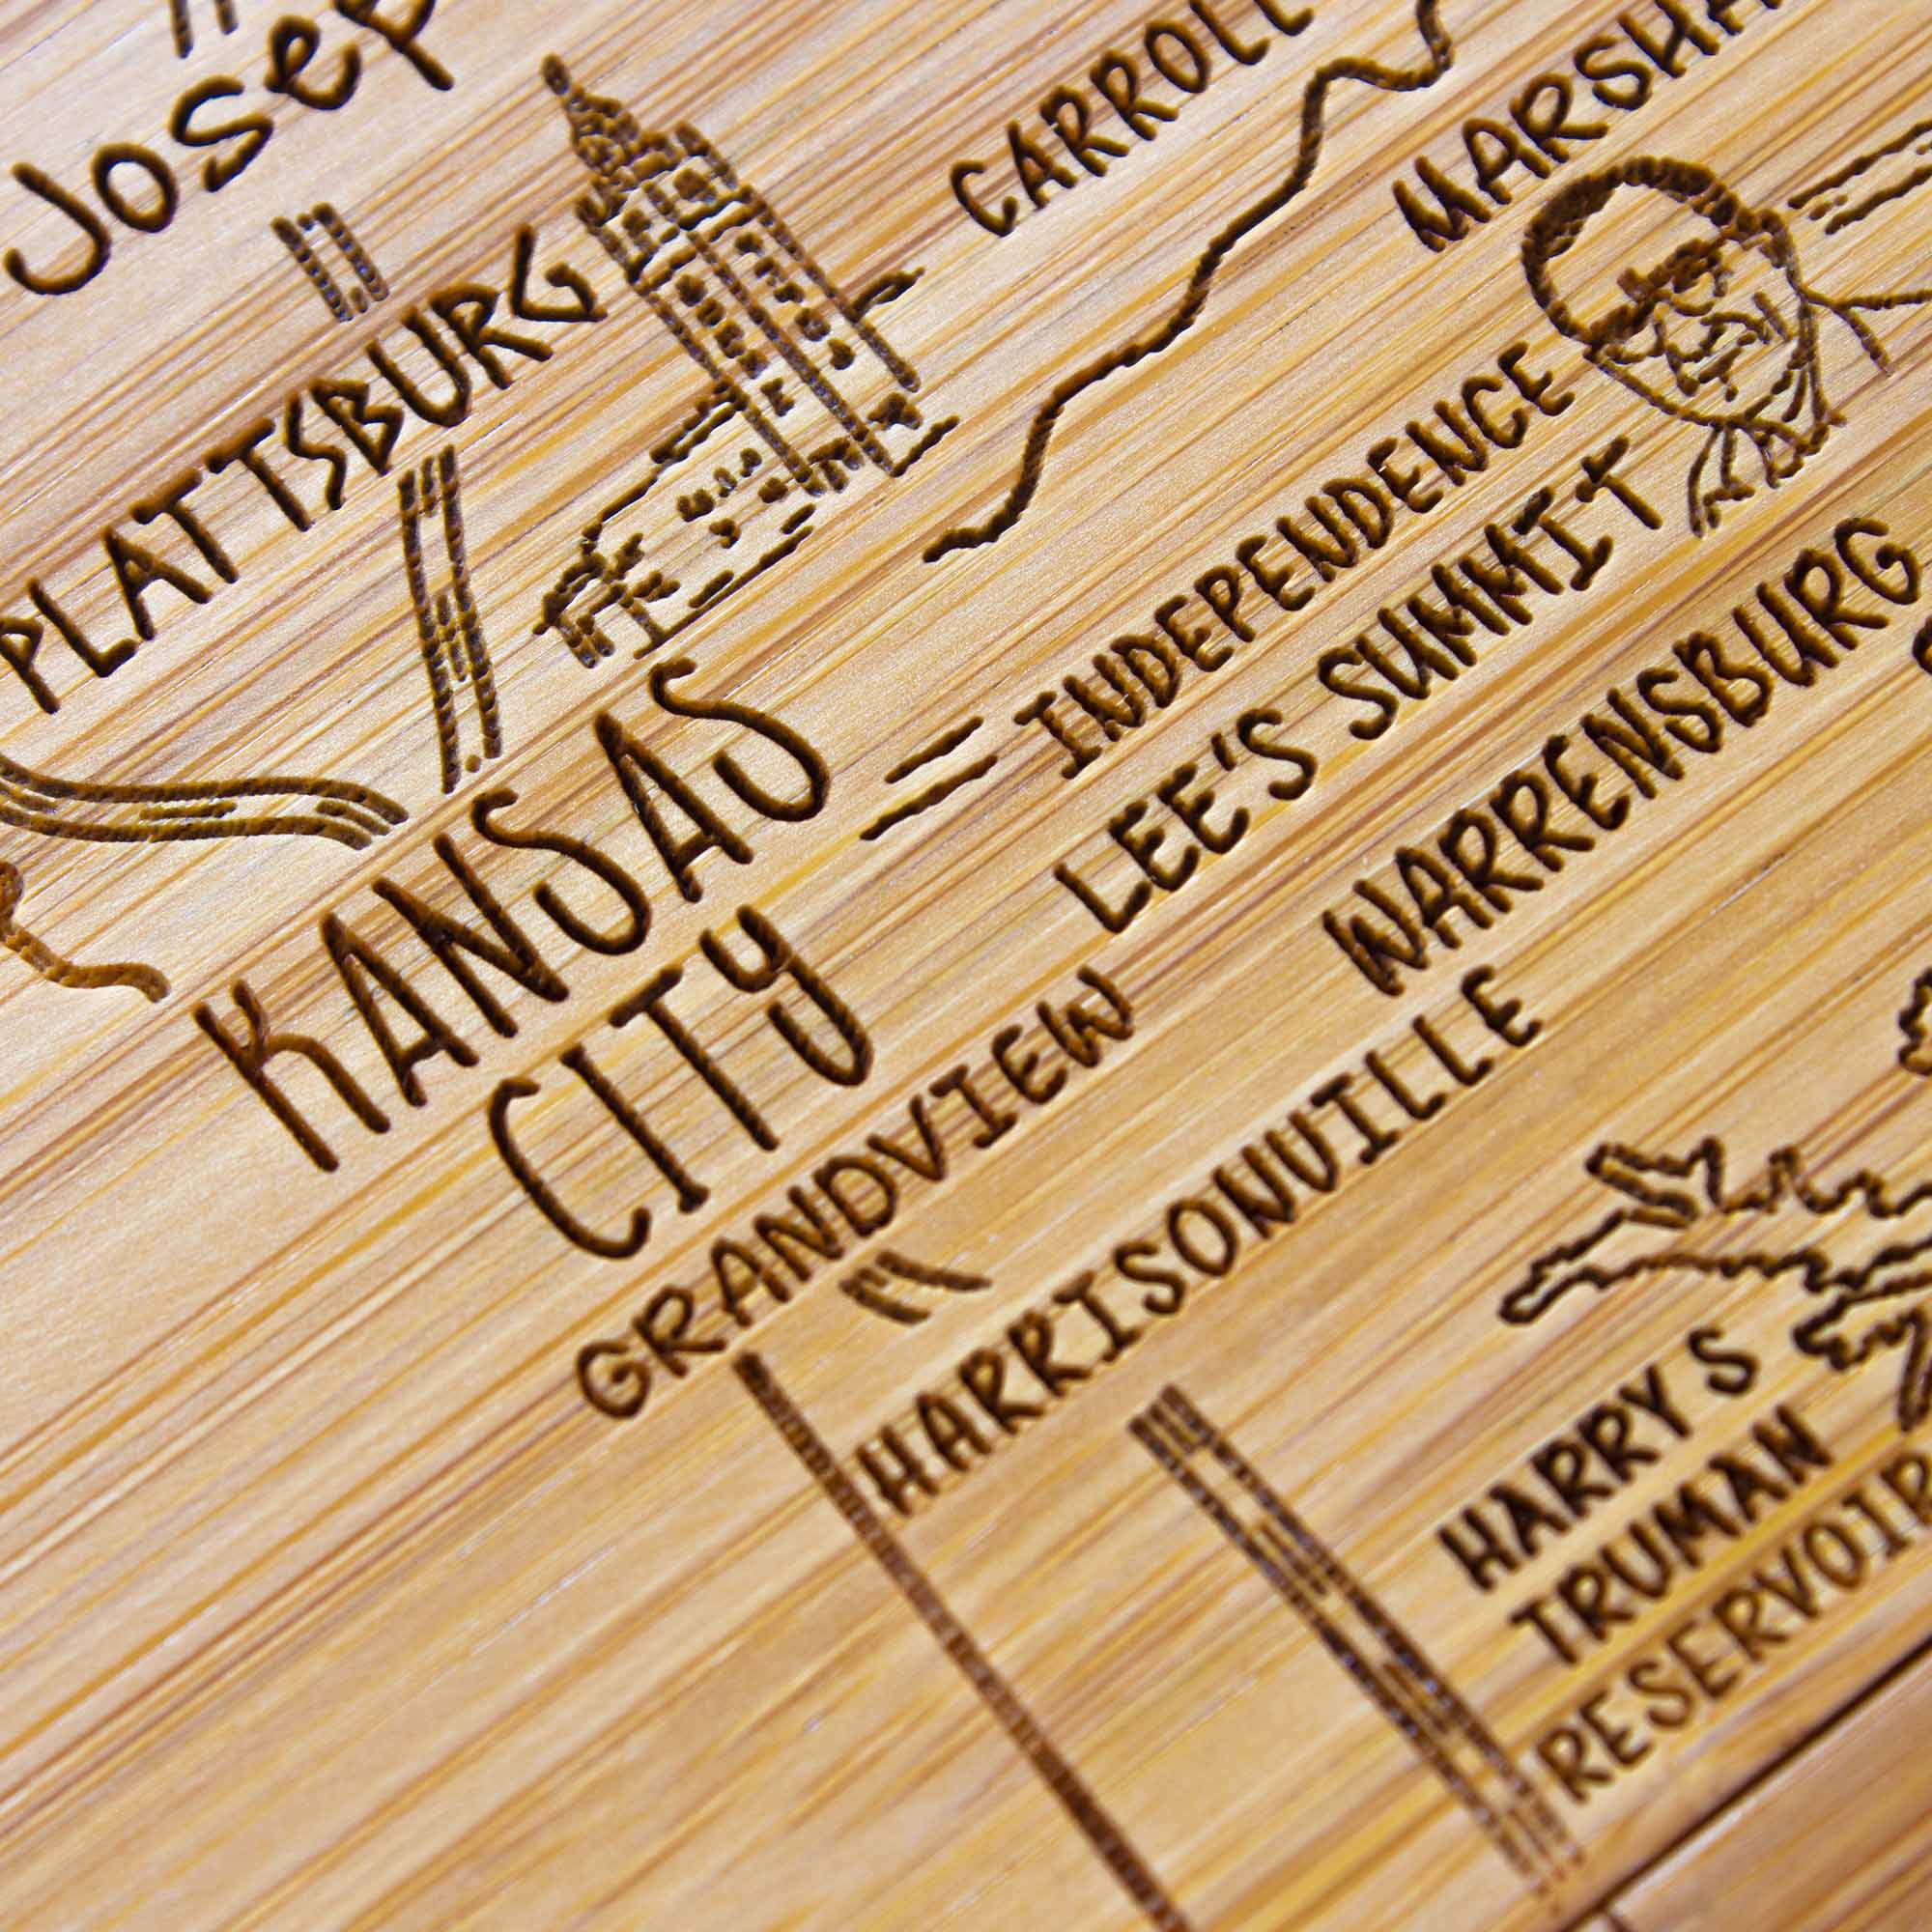 Josep
PLATTSBURG
CARROLL
MARSHA
KANSAS
CITY
INDEPENDENCE
LEE'S SUMMIT
WARRENSBURG
GRANDVIEW
HARRISONVILLE
HARRY S
TRUMAN
RESERVOIR